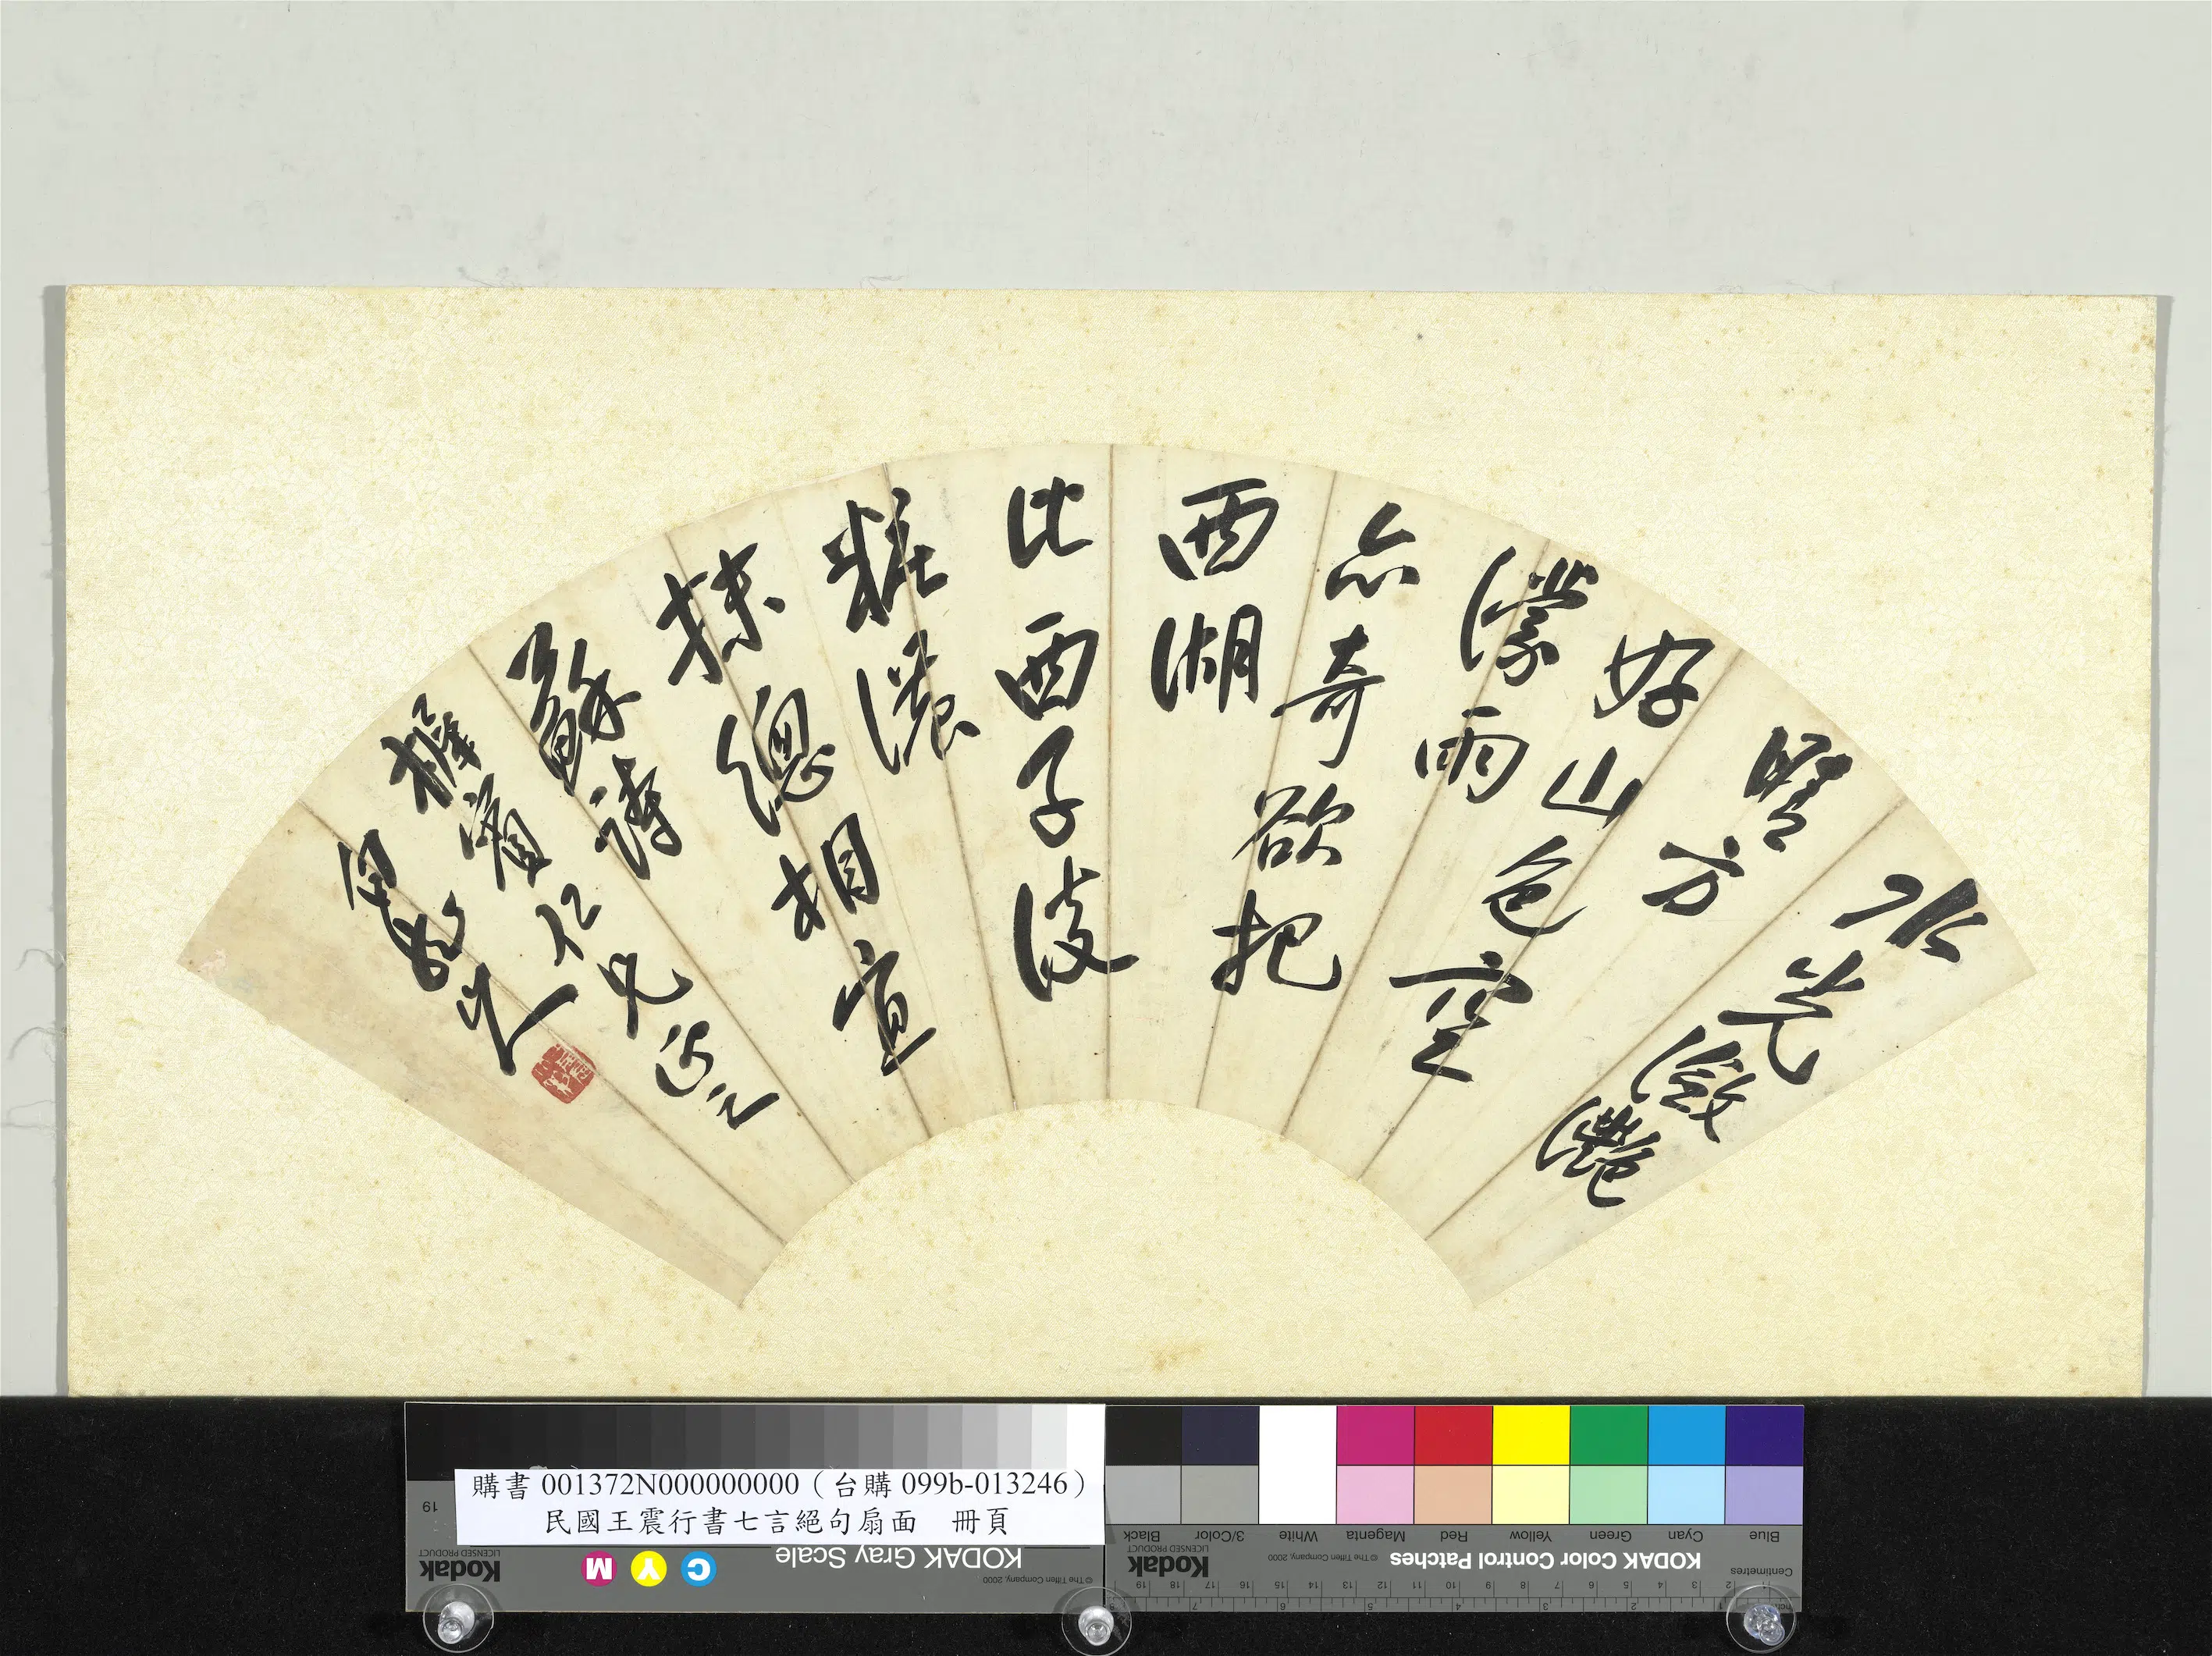 水光瀲灩
晴方
好山色空
濛雨
亦奇欲把
西湖
比西子淡
粧濃
抹總相宜
蘇詩
仁兄正之
白龍山人
購書 001372N000000000（台購 099b-013246）
民國王震行書七言絕句扇面　冊頁
19
Kodak
LICENSED PRODUCT
M Y C
KODAK Gray Scale
© The Tiffen Company, 2000
Black 3/Color White Magenta Red Yellow Green Cyan Blue
Kodak
LICENSED PRODUCT
© The Tiffen Company, 2000
KODAK Color Control Patches
Centimetres
19 18 17 16 15 14 13 12 11 10 9 8 7 6 5 4 3 2 1
8 7 6 5 4 3 2 1